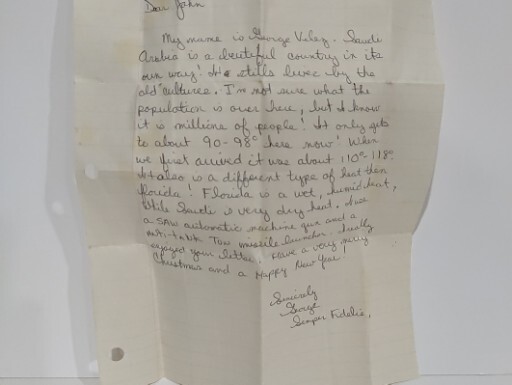 Dear John
My name is George Velez. Saudi
Arabia is a beutiful country in its
own way! It stills lives by the
old cultures. I'm not sure what the
population is over here, but I know
it is millions of people! It only gets
to about 90-98° here now! When
we first arrived it was about 110°-118°
It also is a different type of heat then
Florida! Florida is a wet, humid heat,
while Saudi is very dry heat. I use
a SAW automatic machine gun and a
anti-tank Tow missile launcher. I really
enjoyed your letter. Have a very merry
Christmas and a Happy New Year!
Sincerely
George
Semper Fidelis,